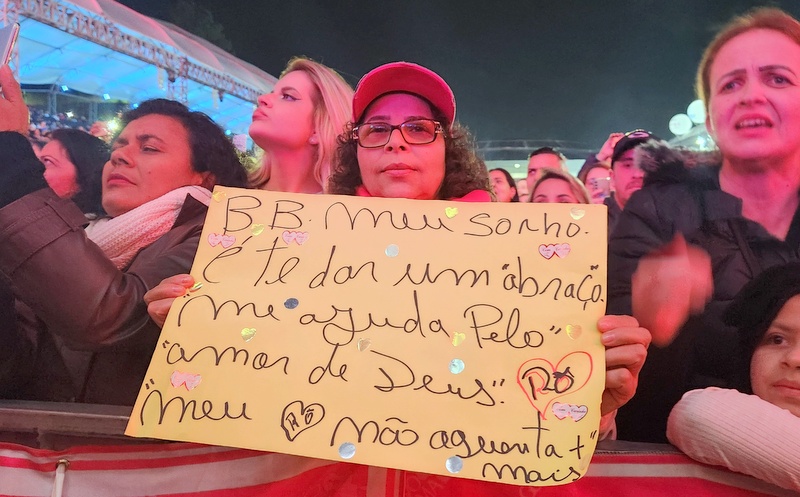 B.B. Meu Sonho.
é te dar um "abraço".
"me ajuda Pelo"
"amor de Deus". Rô
"Meu Rô não aguenta +"
mais